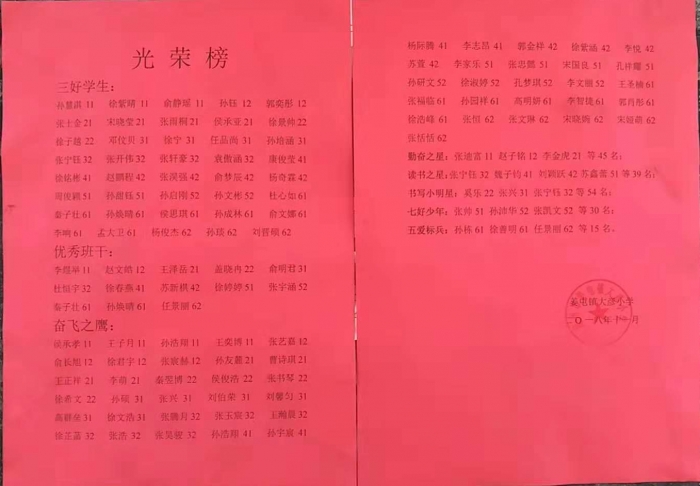 光荣榜
三好学生：
孙慧淇 11 徐紫晴 11 俞静瑶 11 孙钰 12 郭奕彤 12
张士金 21 宋晓莹 21 张雨桐 21 侯承亚 21 徐景帅 22
徐子越 22 邓位贝 31 徐宁 31 任品尚 31 孙培涵 31
张宁钰 32 张开伟 32 张轩豪 32 袁傲涵 32 康俊莹 41
徐铭彬 41 赵鹏程 42 张溟强 42 俞梦辰 42 杨奇霖 42
周俊鹏 51 孙甜钰 51 孙启刚 52 孙文彬 52 杜心如 61
秦子壮 61 孙焕晴 61 侯思琪 61 孙成林 61 俞文娜 61
李响 61 孟大卫 61 杨俊杰 62 孙琰 62 刘晋硕 62
优秀班干：
李煜坤 11 赵文皓 12 王泽磊 21 盖晓冉 22 俞明君 31
杜恒宇 32 徐春燕 41 苏新棋 42 徐婷婷 51 张宇涵 52
秦子壮 61 孙焕晴 61 任景丽 62
奋飞之鹰：
侯承孝 11 王子月 11 孙浩翔 11 王奕博 11 张艺嘉 12
俞长旭 12 徐君宇 12 张宸赫 12 孙友麓 21 曹诗琪 21
王正祥 21 李萌 21 秦煜博 22 侯俊浩 22 张书琴 22
徐希文 22 孙硕 31 张兴 31 刘伯荣 31 刘馨匀 31
高群垒 31 徐文浩 31 张腾月 32 张玉宸 32 王顺晨 32
徐芷菡 32 张浩 32 张昊骏 32 孙浩翔 41 孙宇宸 41
杨际腾 41 李志昂 41 郭金祥 42 徐紫涵 42 李悦 42
苏萱 42 李家乐 51 张忠凯 51 宋国良 51 孔祥耀 51
孙研文 52 徐淑婷 52 孔梦琪 52 李文丽 52 王圣楠 61
张福临 61 孙园祥 61 高明妍 61 李智捷 61 郭肖彤 61
徐浩峰 61 张恒 62 张文琳 62 宋晓婉 62 宋姮萌 62
张恬恬 62
勤奋之星：张迪富 11 赵子铭 12 李金虎 21 等 45 名；
读书之星：张宁钰 32 魏子钧 41 刘颖跃 42 苏鑫蕾 51 等 39 名；
书写小明星：莫乐 22 张兴 31 张宁钰 32 等 54 名；
七好少年：张帅 51 孙沛华 52 张凯文 52 等 30 名；
五爱标兵：孙栋 61 徐善明 61 任景丽 62 等 15 名。
屯镇大彦小学
二〇一八年十一月